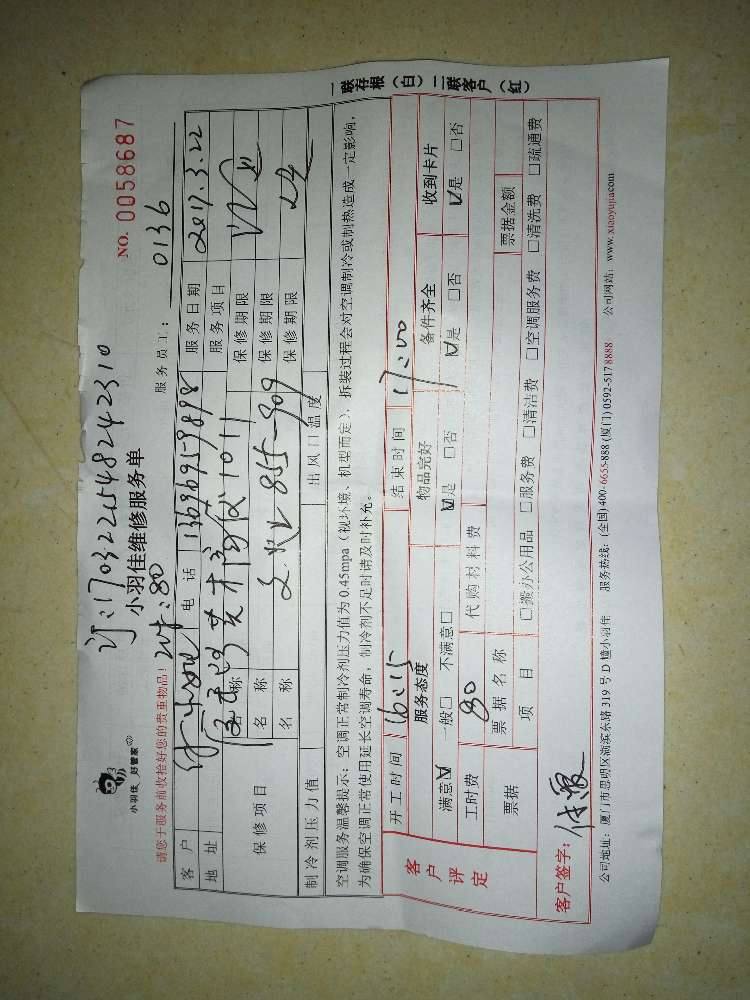 订:170322548242310
小羽佳 好管家
小羽佳维修服务单
NO. 0058687
请您于服务前收拾好您的贵重物品!
:80
服务员工: 0136
客户 电话 13696959898 服务日期 2017.3.22
地址 服务项目
保修项目 名称 保修期限
名称 保修期限
名称 保修期限
制冷剂压力值 出风口温度
空调服务温馨提示:空调正常制冷剂压力值为0.45mpa(视环境、机型而定)、拆装过程会对空调制冷或制热造成一定影响,
为确保空调正常使用延长空调寿命,制冷剂不足时请及时补充。
客户评定
开工时间 16:15 结束时间 17:00
服务态度 物品完好 备件齐全 收到卡片
满意☑ 一般□ 不满意□ ☑是 □否 ☑是 □否 ☑是 □否
工时费 80 代购材料费
票据 票据名称 票据金额
项目 □搬办公用品 □服务费 □清洁费 □空调服务费 □清洗费 □疏通费
客户签字:
公司地址:厦门市思明区湖滨东路319号D幢小羽佳 服务热线:(全国)400-6655-888 (厦门) 0592-517 8888 公司网站:www.xiaoyujia.com
一联存根(白)二联客户(红)